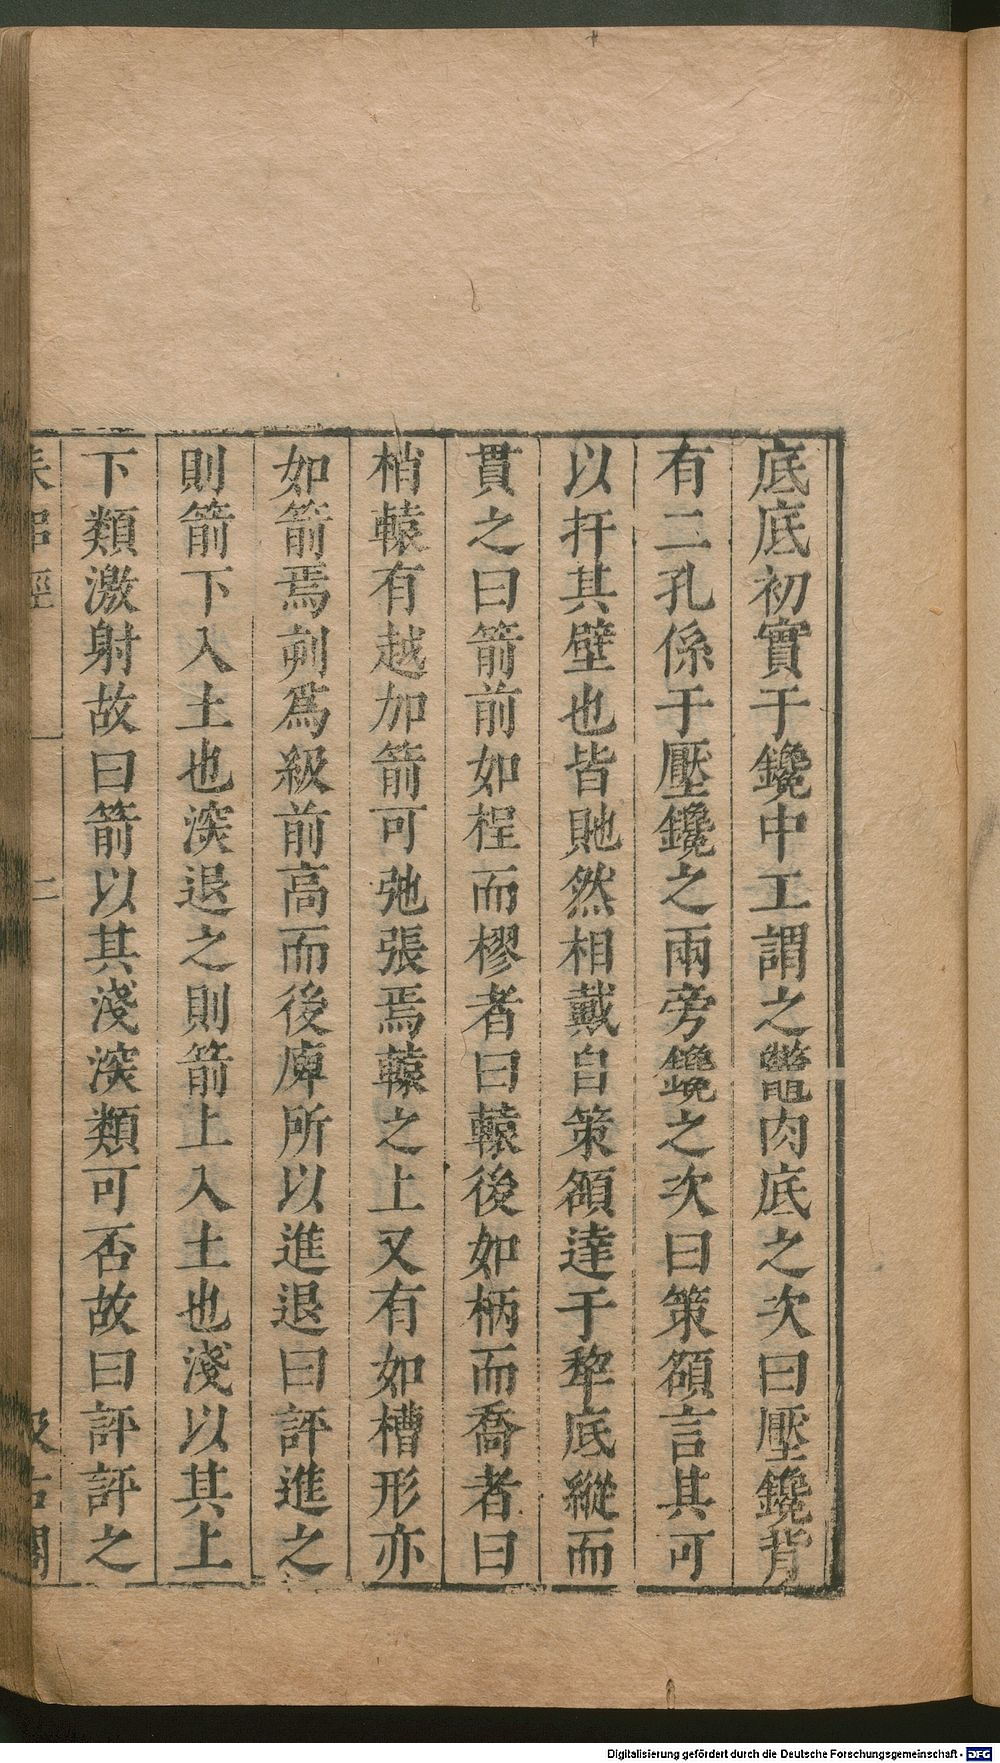 底底初實于鑱中工謂之鼈肉底之次曰壓鑱背
有二孔係于壓鑱之兩旁鑱之次曰策額言其可
以扞其壁也皆𧵳然相戴自策額達于犂底縱而
貫之曰箭前如桯而樛者曰轅後如柄而喬者曰
梢轅有越加箭可弛張焉轅之上又有如槽形亦
如箭焉刻爲級前高而後庳所以進退曰評進之
則箭下入土也深退之則箭上入土也淺以其上
下類激射故曰箭以其淺深類可否故曰評評之
耒耜經
二
汲古閣
Digitalisierung gefördert durch die Deutsche Forschungsgemeinschaft - DFG